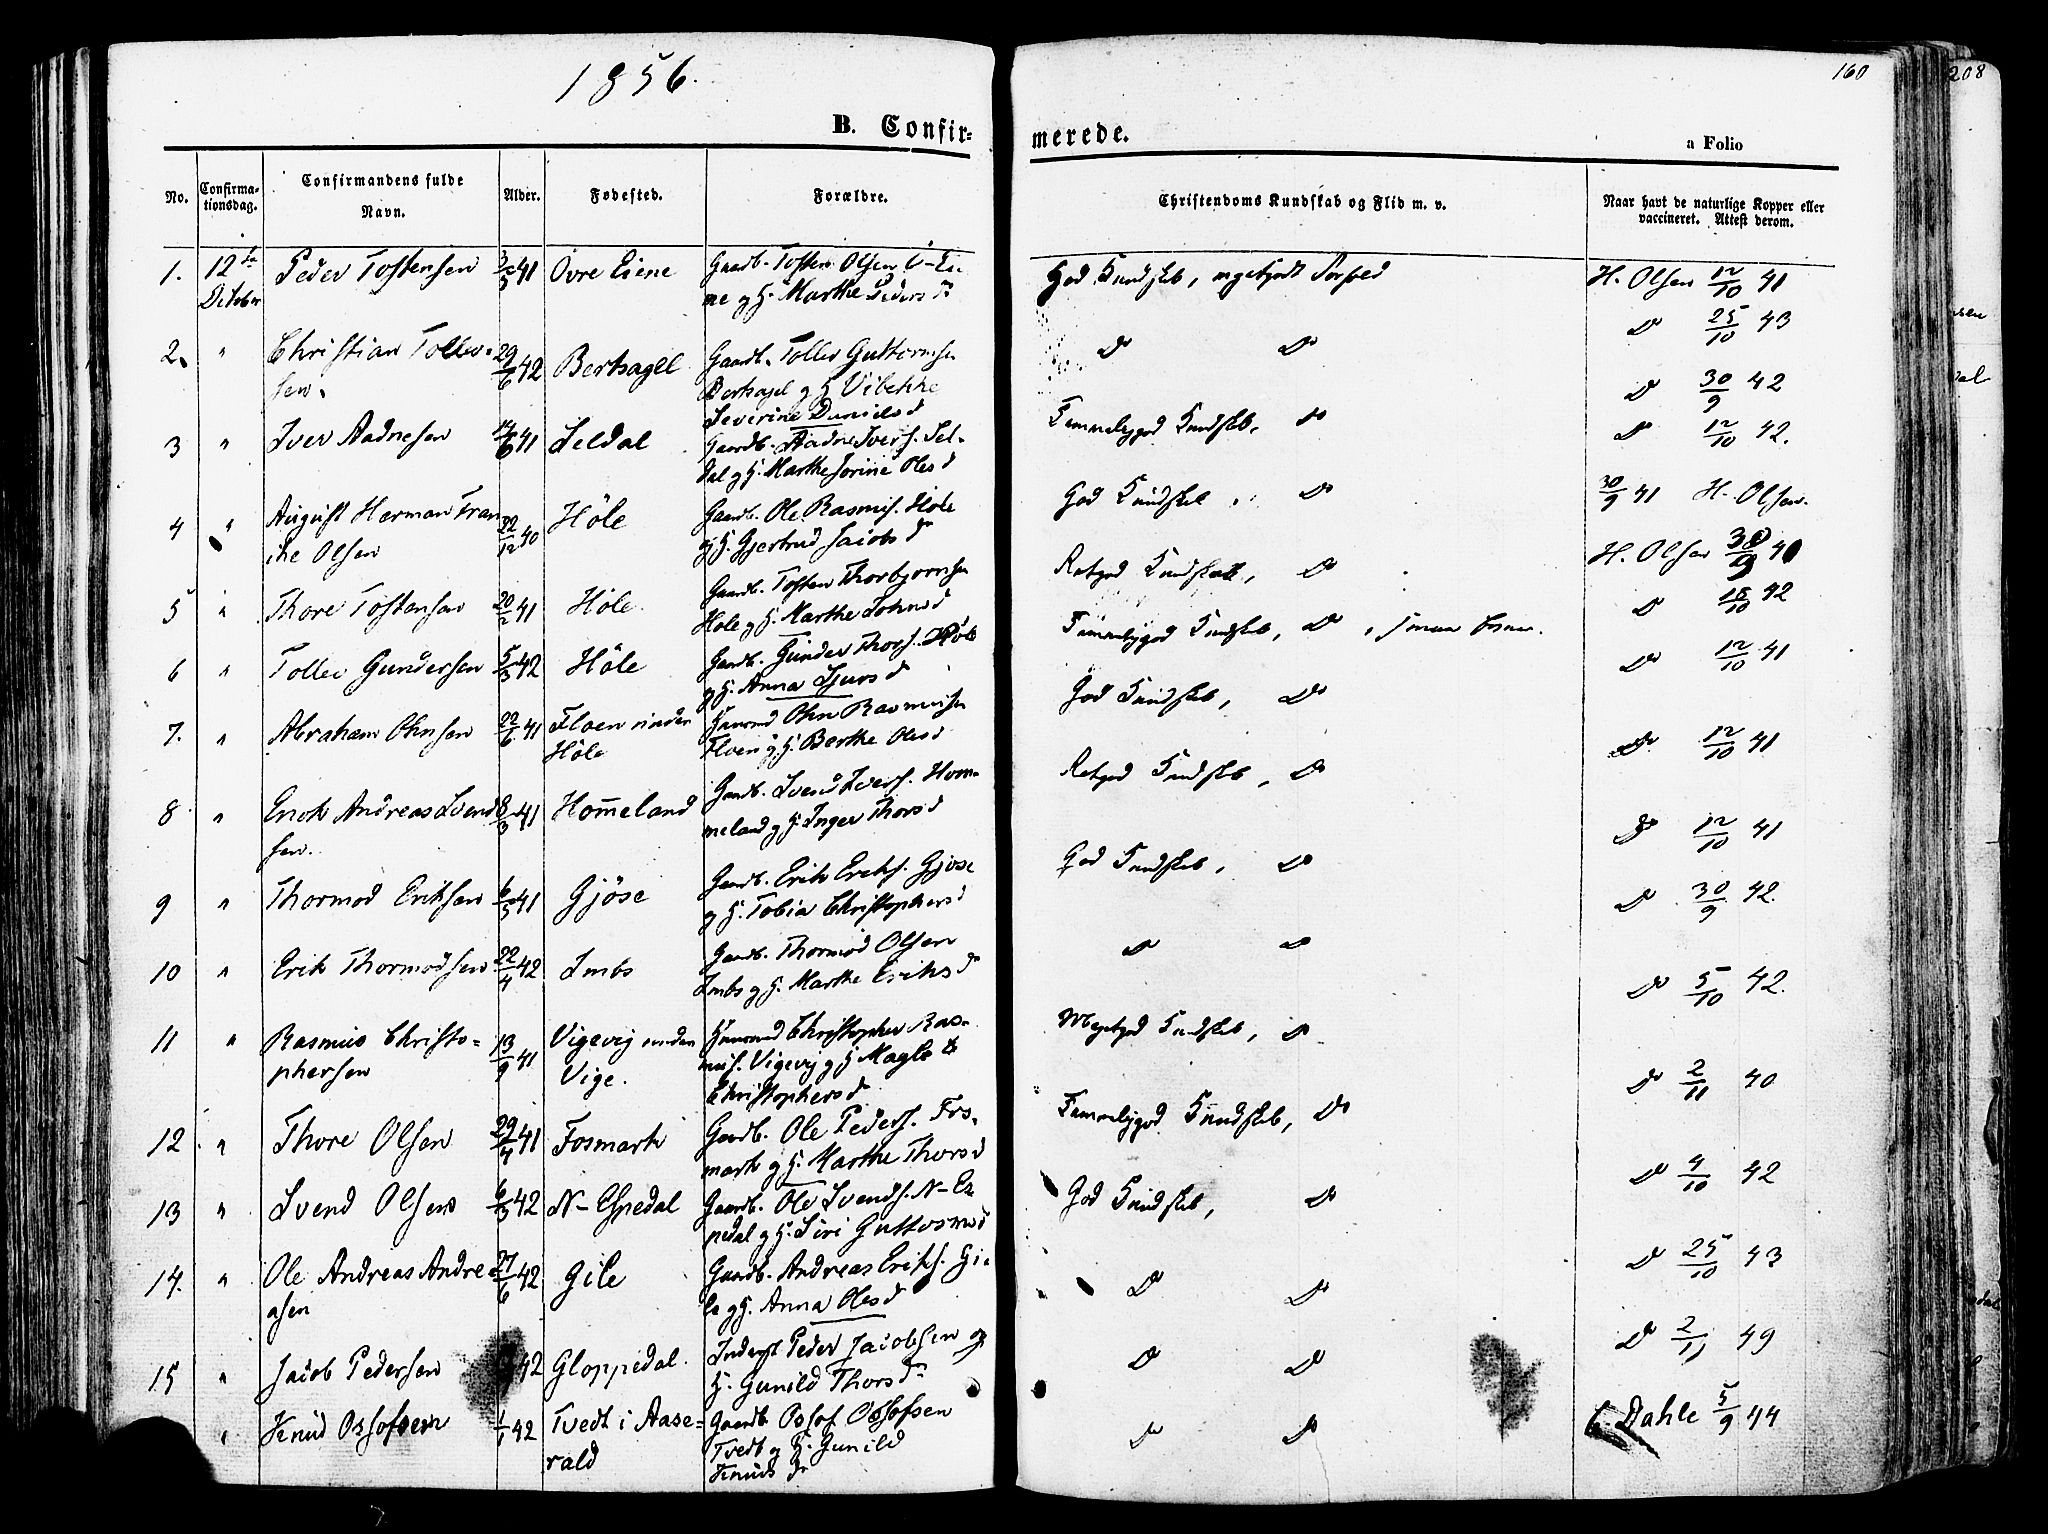 1856.
160
208
B. Confir=
merede.
a Folio
No.
Confirma-
tionsdag.
Confirmandens fulde
Navn.
Alder.
Fødested.
Forældre.
Christendoms Kundskab og Flid m. v.
Naar havt de naturlige Kopper eller
vaccineret. Attest derom.
1. 12te Peder Tostensen 41 Ovre Eiene Gaardb. Tosten Olsen Ö-Ei-
October ne og H. Marthe Pedersdr
God Kundskab, meget godt Forhold H. Olsen 12/10 41
2. " Christian Tollev- 29/6 42 Bertsagel Gaardb. Tollev Guttormsen
sen. Bertsagel og H Vibekke
Severine Danielsd
Do Do Do 25/10 43
3 " Iver Aadnesen 41 Seldal Gaardb. Aadne Ivers. Sel-
dal og H. Marthe Serine Olesd
Temmeliggod Kundskab, Do Do 30/9 42
Do 12/10 42.
4 " August Herman Fran 22/12 40 Höle Gaardb. Ole Rasmus. Höle
ike Olsen og H. Gjertrud Jacobsd
God Kundskab, Do 30/9 41 H. Olsen.
5 " Thore Tostensen 20/2 41 Höle. Gaardb. Tosten Thorbjornsen
Höle og H. Marthe Johnsd
Retgod Kundskab, Do H. Olsen
6 " Tollev Gundersen 5/3 42 Höle Gaardb. Gunder Thors. Höle
og H. Anna Sjursd
Temmeliggod Kundskab, Do Do 18/10 42
7. " Abraham Ohnsen 22/6 41 Floen under Huusmd Ohn Rasmusen
Höle Floen og H. Berthe Olesd
God Kundskab, Do Do 12/10 41
8 " Erick Andreas Svend 8/3 41 Hom̅eland Gaardb. Svend Ivers. Hom-
sen. meland og H. Inger Thorsd
Retgod Kundskab, Do Do 12/10 41
9 " Thormod Eriksen 6/5 41 Gjöse Gaardb. Erik Eriks. Gjöse
og H. Tobia Christophersd
God Kundskab, Do Do 12/10 41
10 " Erik Thormodsen 22/4 42 Imbs Gaardb. Thormod Olsen
Imbs og H. Marthe Eriksd
Do Do Do 30/9 42.
11 " Rasmus Christo- 13/9 41 Vigevig under Huusmd Christopher Ras-
phersen Vige. mus. Vigevig og H Magle
Christophersd
Megetgod Kundskab, Do Do 5/10 42.
12 " Thore Olsen 29/4 41 Fosmark Gaardb. Ole Peders. Fos-
mark og H. Marthe Thorsd
Temmeliggod Kundskab, Do Do 2/11 40
13 " Svend Olsen 6/3 42 N-Espedal Gaardb. Ole Svends. N-Es
pedal og H. Siri Guttormsd
God Kundskab, Do Do 4/10 42
14. " Ole Andreas Andre- 27/6 42 Gile Gaardb. Andreas Eriks. Gi-
asen le og H. Anna Olesd
Do Do Do 25/10 43
15 " Jacob Pedersen 42 Gloppedal. Inderst Peder Jacobsen og
H. Gunild Thorsdr
Do Do Do 2/11 49
" Knud Ossofsen 1/1 42 Tvedt i Aase- Gaardb Ossof Ossofsen
rald Tvedt og H. Gunild
Knuds dr
Do Do C. Dahle 5/9 44